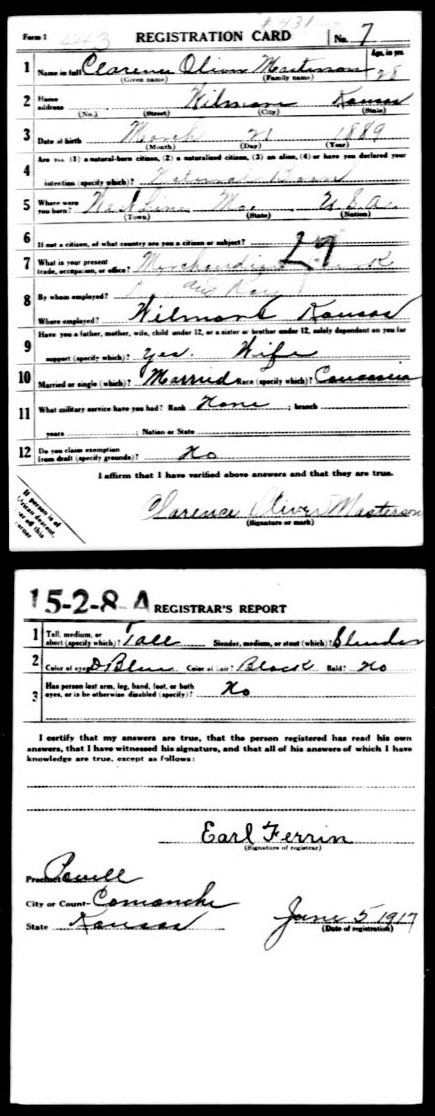 # 431
Form 1 REGISTRATION CARD No. 7
Age, in yrs.
1 Name in full Clarence Oliver Masterson 28
(Given name) (Family name)
2 Home address Wilmore Kansas
(No.) (Street) (City) (State)
3 Date of birth March 21 1889
(Month) (Day) (Year)
Are you (1) a natural-born citizen, (2) a naturalized citizen, (3) an alien, (4) or have you declared your
4 intention (specify which)? Natural Born
5 Where were you born? Mo. U.S.A.
(Town) (State) (Nation)
6 If not a citizen, of what country are you a citizen or subject?
29
7 What is your present trade, occupation, or office?
8 By whom employed?
Where employed? Wilmore Kansas
9 Have you a father, mother, wife, child under 12, or a sister or brother under 12, solely dependent on you for
support (specify which)? Yes. Wife
10 Married or single (which)? Married Race (specify which)? Caucasian
11 What military service have you had? Rank None ; branch
years ; Nation or State
12 Do you claim exemption from draft (specify grounds)? No
I affirm that I have verified above answers and that they are true.
Clarence Oliver Masterson
(Signature or mark)
If person is of
African descent,
off this
corner
15-2-8-A REGISTRAR'S REPORT
1 Tall, medium, or short (specify which)? Tall Slender, medium, or stout (which)? Slender
2 Color of eyes? D Blue Color of hair? Black Bald? No
3 Has person lost arm, leg, hand, foot, or both eyes, or is he otherwise disabled (specify)? No
I certify that my answers are true, that the person registered has read his own
answers, that I have witnessed his signature, and that all of his answers of which I have
knowledge are true, except as follows:
Earl Ferrin
(Signature of registrar)
Precinct Powell
City or County Comanche
State Kansas June 5 1917
(Date of registration)